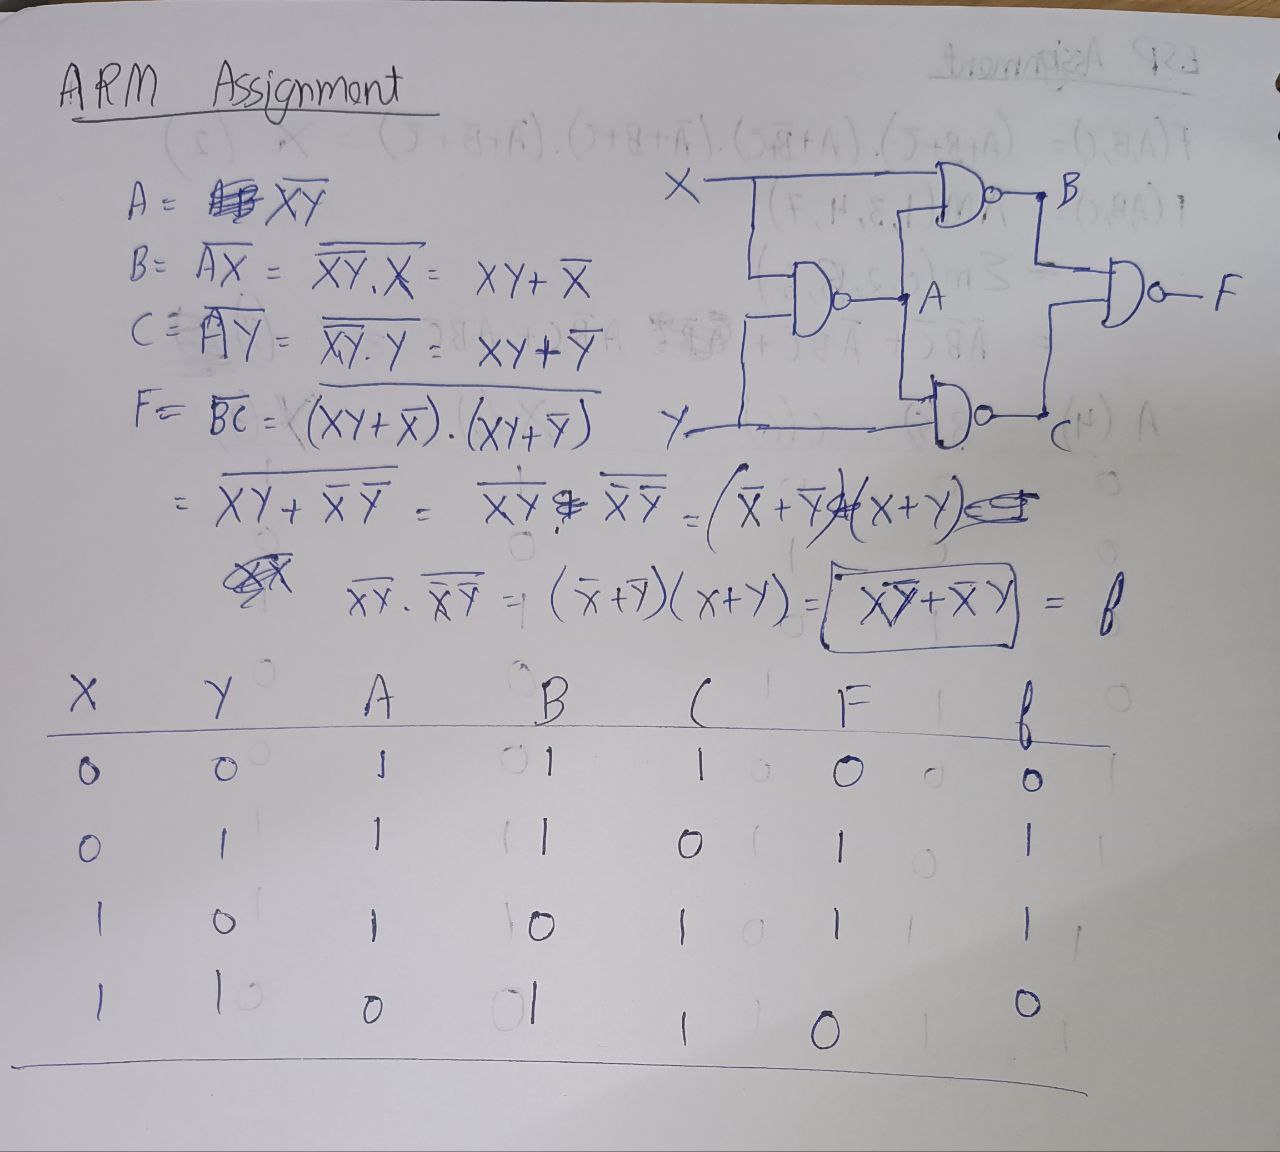 ARM Assignment
A = X̅Y̅
B = A̅X̅ = \overline{\overline{XY}.X} = XY + X̅
C = \overline{AY} = \overline{\overline{XY}.Y} = XY + Y̅
F = \overline{BC} = \overline{(XY + X̅).(XY + Y̅)}
= \overline{XY + X̅ Y̅} = \overline{XY} \overline{X̅ Y̅} = (X̅ + Y̅)(X + Y)
\overline{XY} . \overline{X̅ Y̅} = (X̅ + Y̅)(X + Y) = XY̅ + X̅Y = f
X
B
A
F
Y
C
X Y A B C F f
0 0 1 1 1 0 0
0 1 1 1 0 1 1
1 0 1 0 1 1 1
1 1 0 1 1 0 0